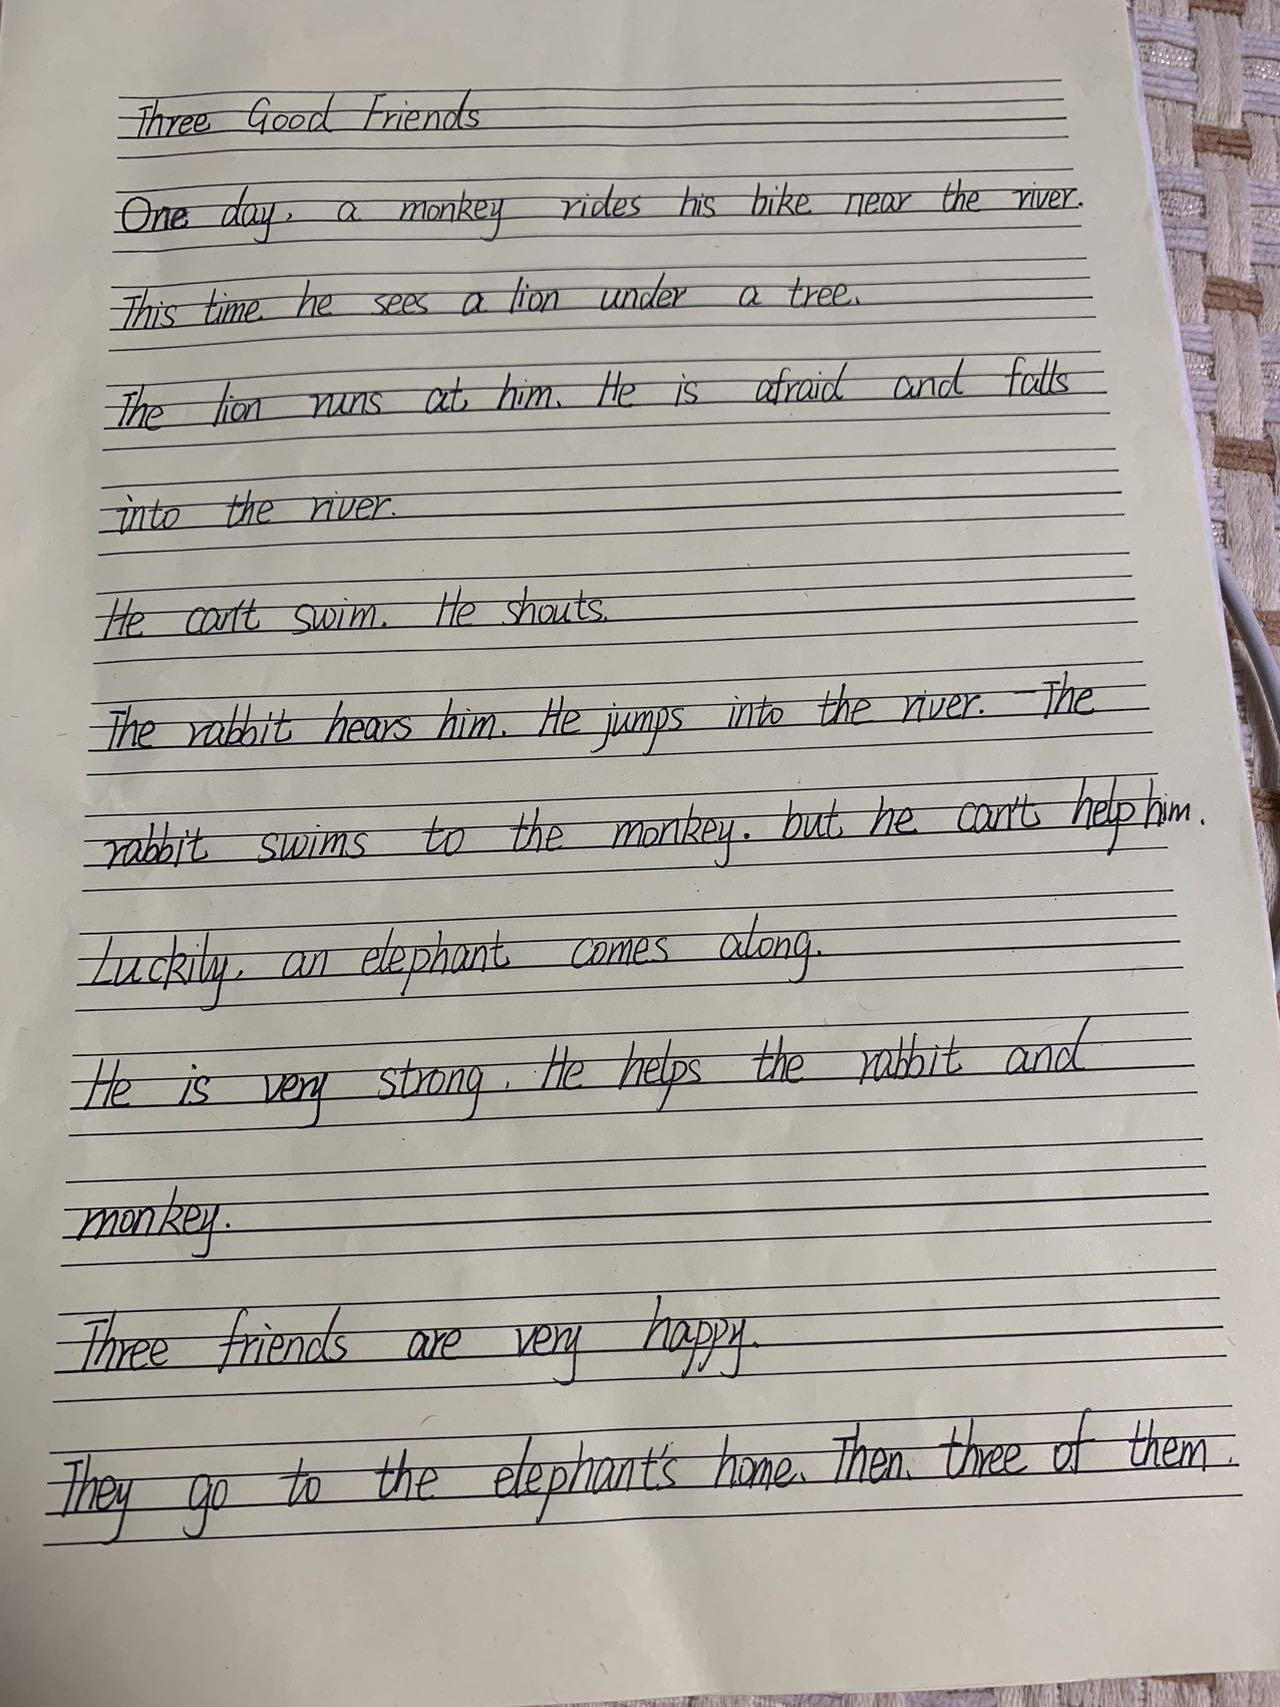 Three Good Friends
One day, a monkey rides his bike near the river.
This time he sees a lion under a tree.
The lion runs at him. He is afraid and falls
into the river.
He can't swim. He shouts.
The rabbit hears him. He jumps into the river. The
rabbit swims to the monkey. but he can't help him.
Luckily, an elephant comes along.
He is very strong. He helps the rabbit and
monkey.
Three friends are very happy.
They go to the elephant's home. Then, three of them.